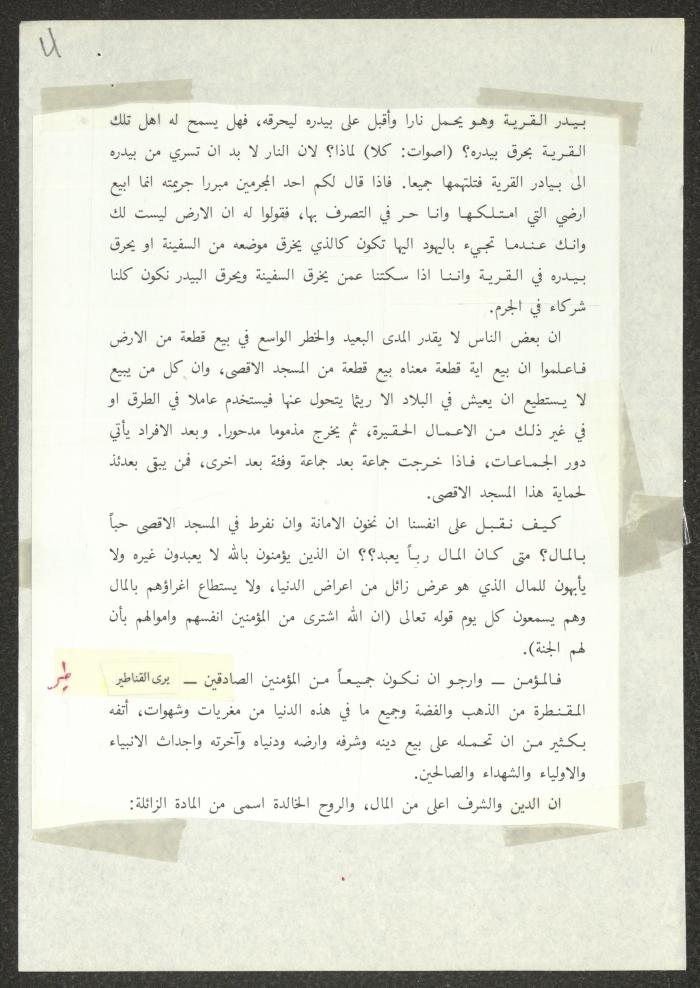 بيدر القرية وهو يحمل نارا وأقبل على بيدره ليحرقه، فهل يسمح له اهل تلك
القرية بحرق بيدره؟ (اصوات: كلا) لماذا؟ لان النار لا بد ان تسري من بيدره
الى بيادر القرية فتلتهمها جميعا. فاذا قال لكم احد المجرمين مبررا جريمته انما ابيع
ارضي التي امتلكها وانا حر في التصرف بها، فقولوا له ان الارض ليست لك
وانك عندما تجيء باليهود اليها تكون كالذي يخرق موضعه من السفينة او يحرق
بيدره في القرية واننا اذا سكتنا عمن يخرق السفينة ويحرق البيدر نكون كلنا
شركاء في الجرم.
ان بعض الناس لا يقدر المدى البعيد والخطر الواسع في بيع قطعة من الارض
فاعلموا ان بيع اية قطعة معناه بيع قطعة من المسجد الاقصى، وان كل من يبيع
لا يستطيع ان يعيش في البلاد الا ريثما يتحول عنها فيستخدم عاملا في الطرق او
في غير ذلك من الاعمال الحقيرة، ثم يخرج مذموما مدحورا. وبعد الافراد يأتي
دور الجماعات، فاذا خرجت جماعة بعد جماعة وفئة بعد اخرى، فمن يبقى بعدئذ
لحماية هذا المسجد الاقصى.
كيف نقبل على انفسنا ان نخون الامانة وان نفرط في المسجد الاقصى حباً
بالمال؟ متى كان المال رباً يعبد؟؟ ان الذين يؤمنون بالله لا يعبدون غيره ولا
يأبهون للمال الذي هو عرض زائل من اعراض الدنيا، ولا يستطاع اغراؤهم بالمال
وهم يسمعون كل يوم قوله تعالى (ان الله اشترى من المؤمنين انفسهم واموالهم بأن
لهم الجنة).
فالمؤمن ــ وارجو ان نكون جميعاً من المؤمنين الصادقين ــ يرى القناطير
طير
المقنطرة من الذهب والفضة وجميع ما في هذه الدنيا من مغريات وشهوات، أتفه
بكثير من ان تحمله على بيع دينه وشرفه وارضه ودنياه وآخرته واجداث الانبياء
والاولياء والشهداء والصالحين.
ان الدين والشرف اعلى من المال، والروح الخالدة اسمى من المادة الزائلة: